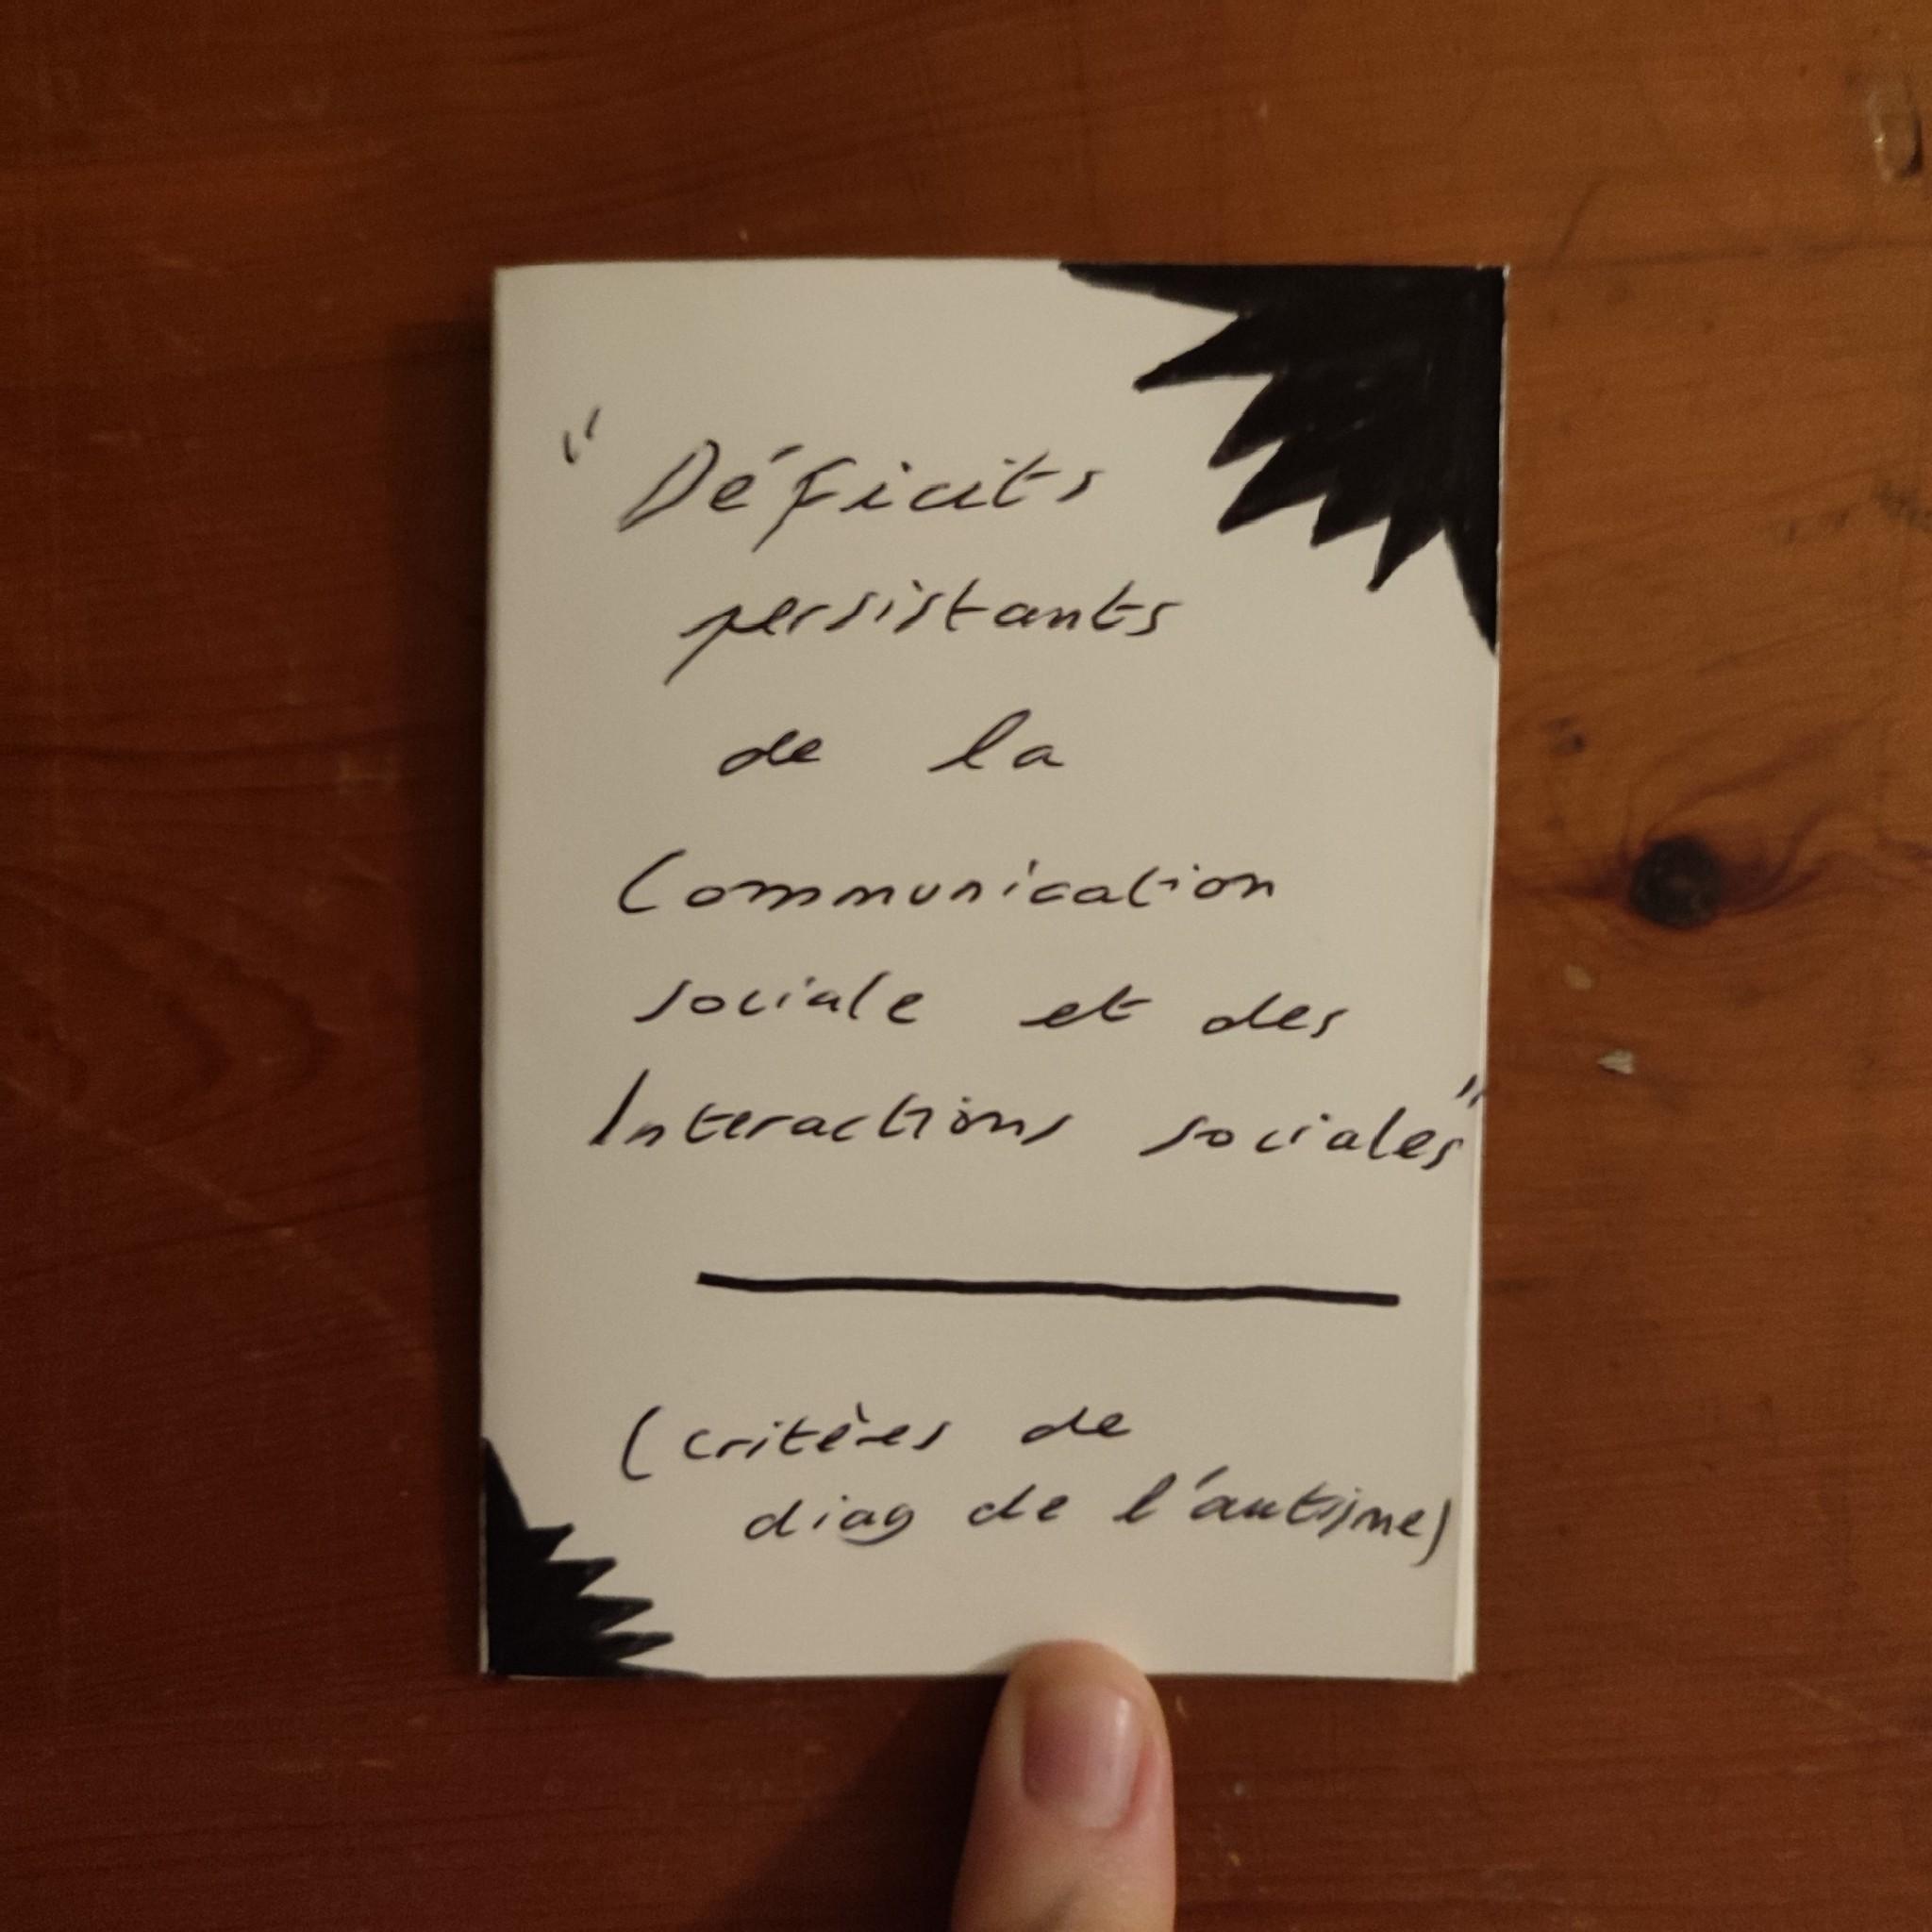 "Déficits
persistants
de la
Communication
sociale et des
Interactions sociales"
(critères de
diag de l'autisme)